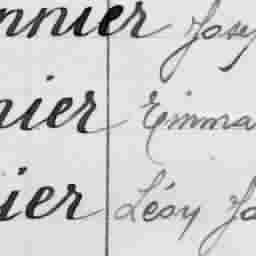 nnier Jose
nier Emma
ier Lésy Jo